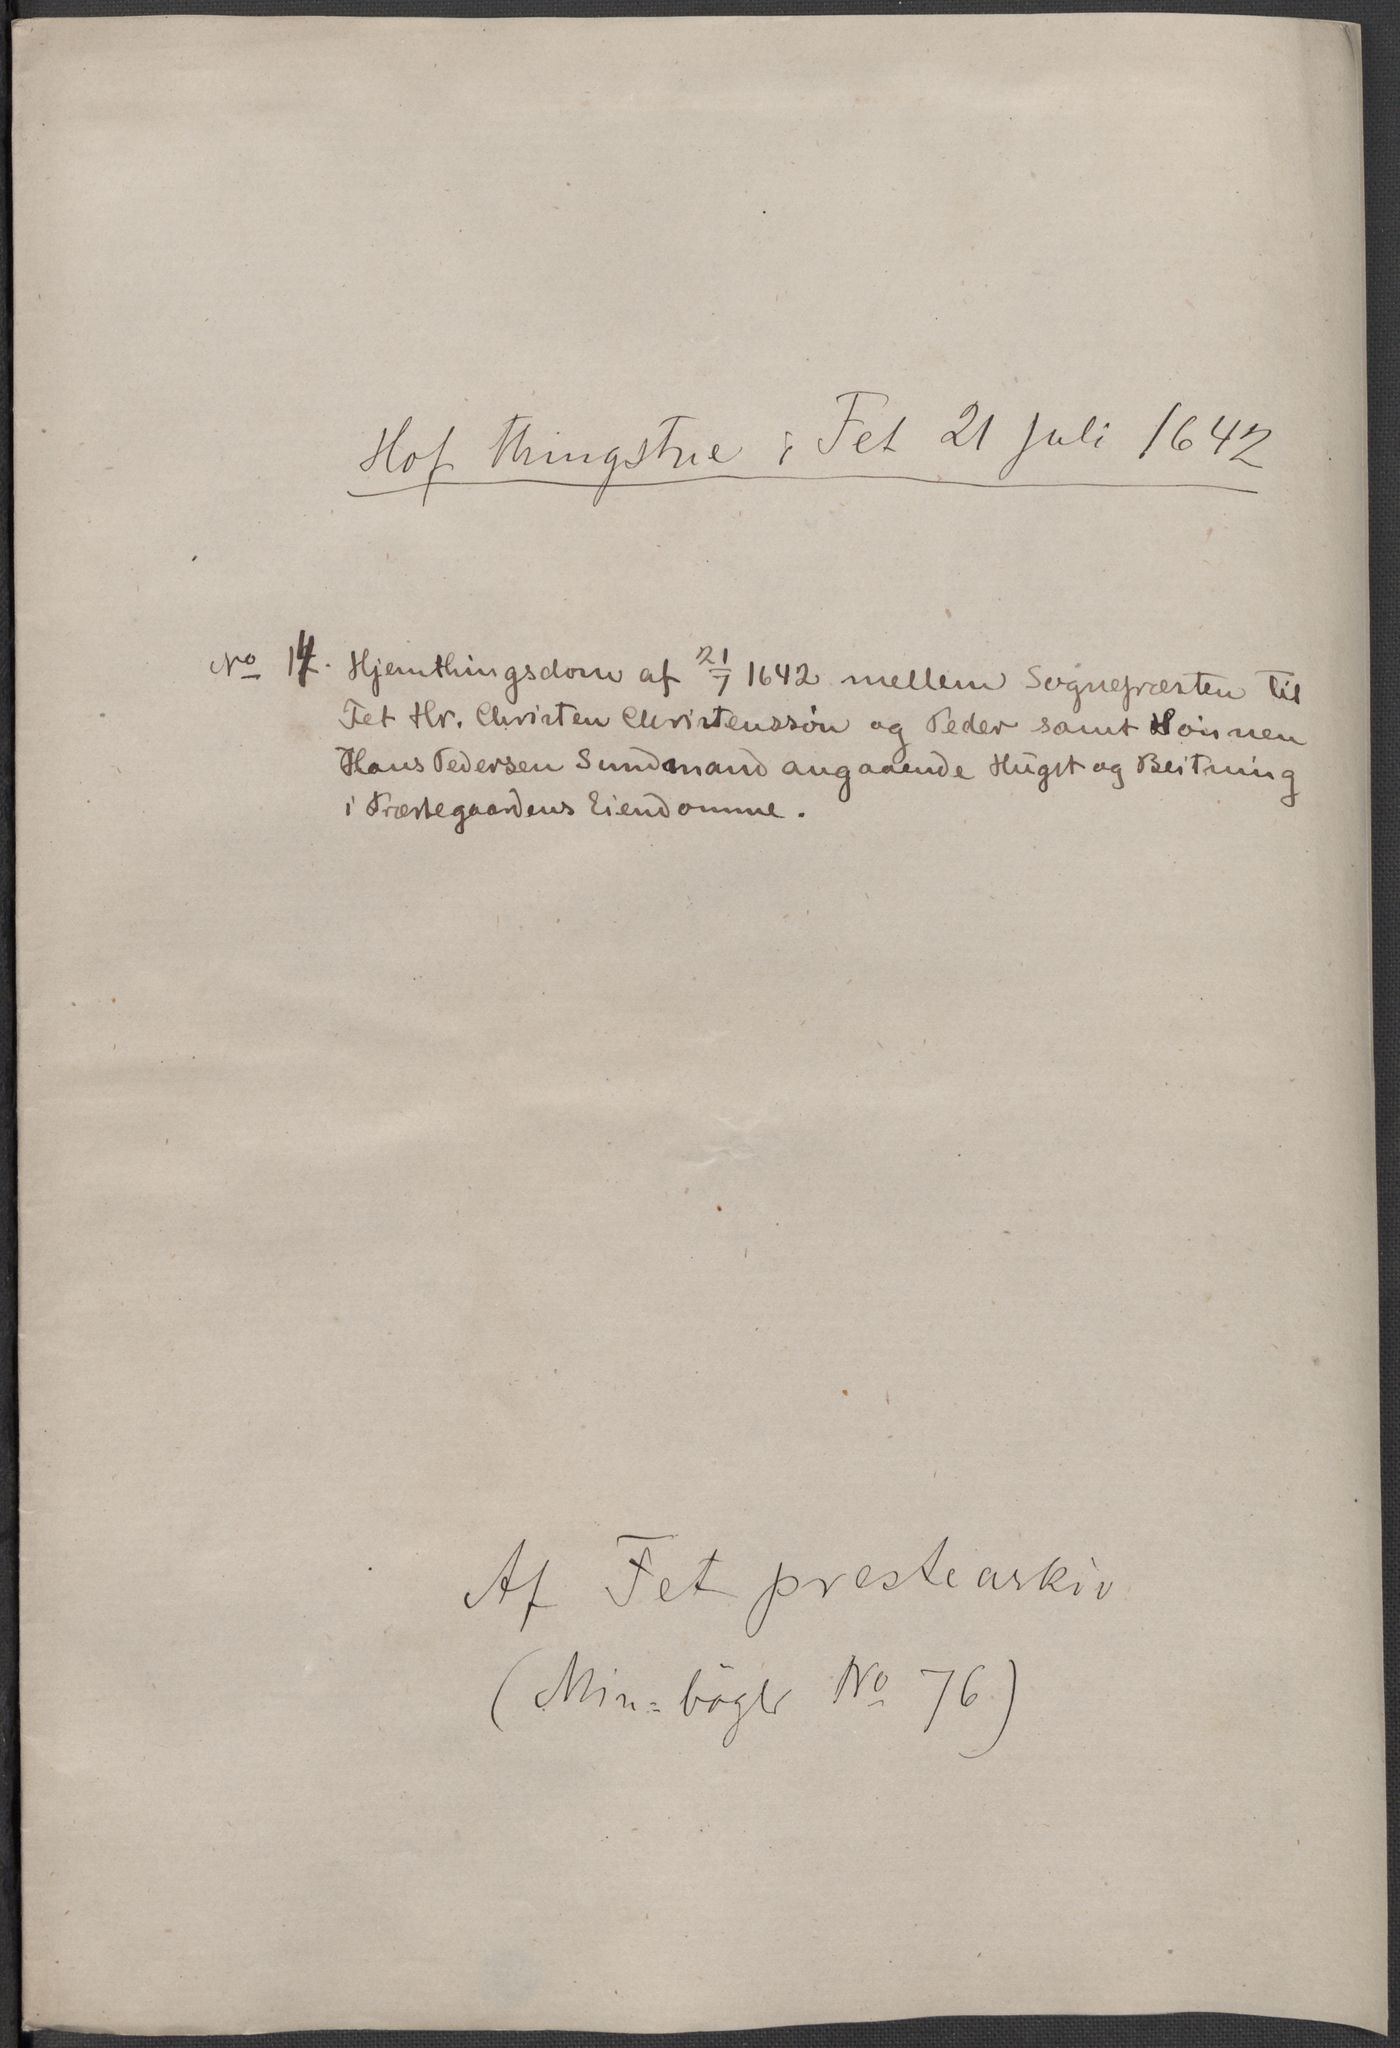 Hof thingstue i Fet 21 Juli 1642
No 14. Hjemthingsdom af 21/7 1642 mellem Sognepræsten til
Fet Hr. Christen Christenssön og Peder samt Sönnen
Hans Pedersen Sundmand angaaende Hugst og Beitning
i Præstegaardens Eiendomme.
Af Fet prestearkiv
(Min=bögb No 76)